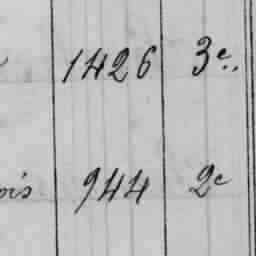 1426 3e..
ois 944 2e